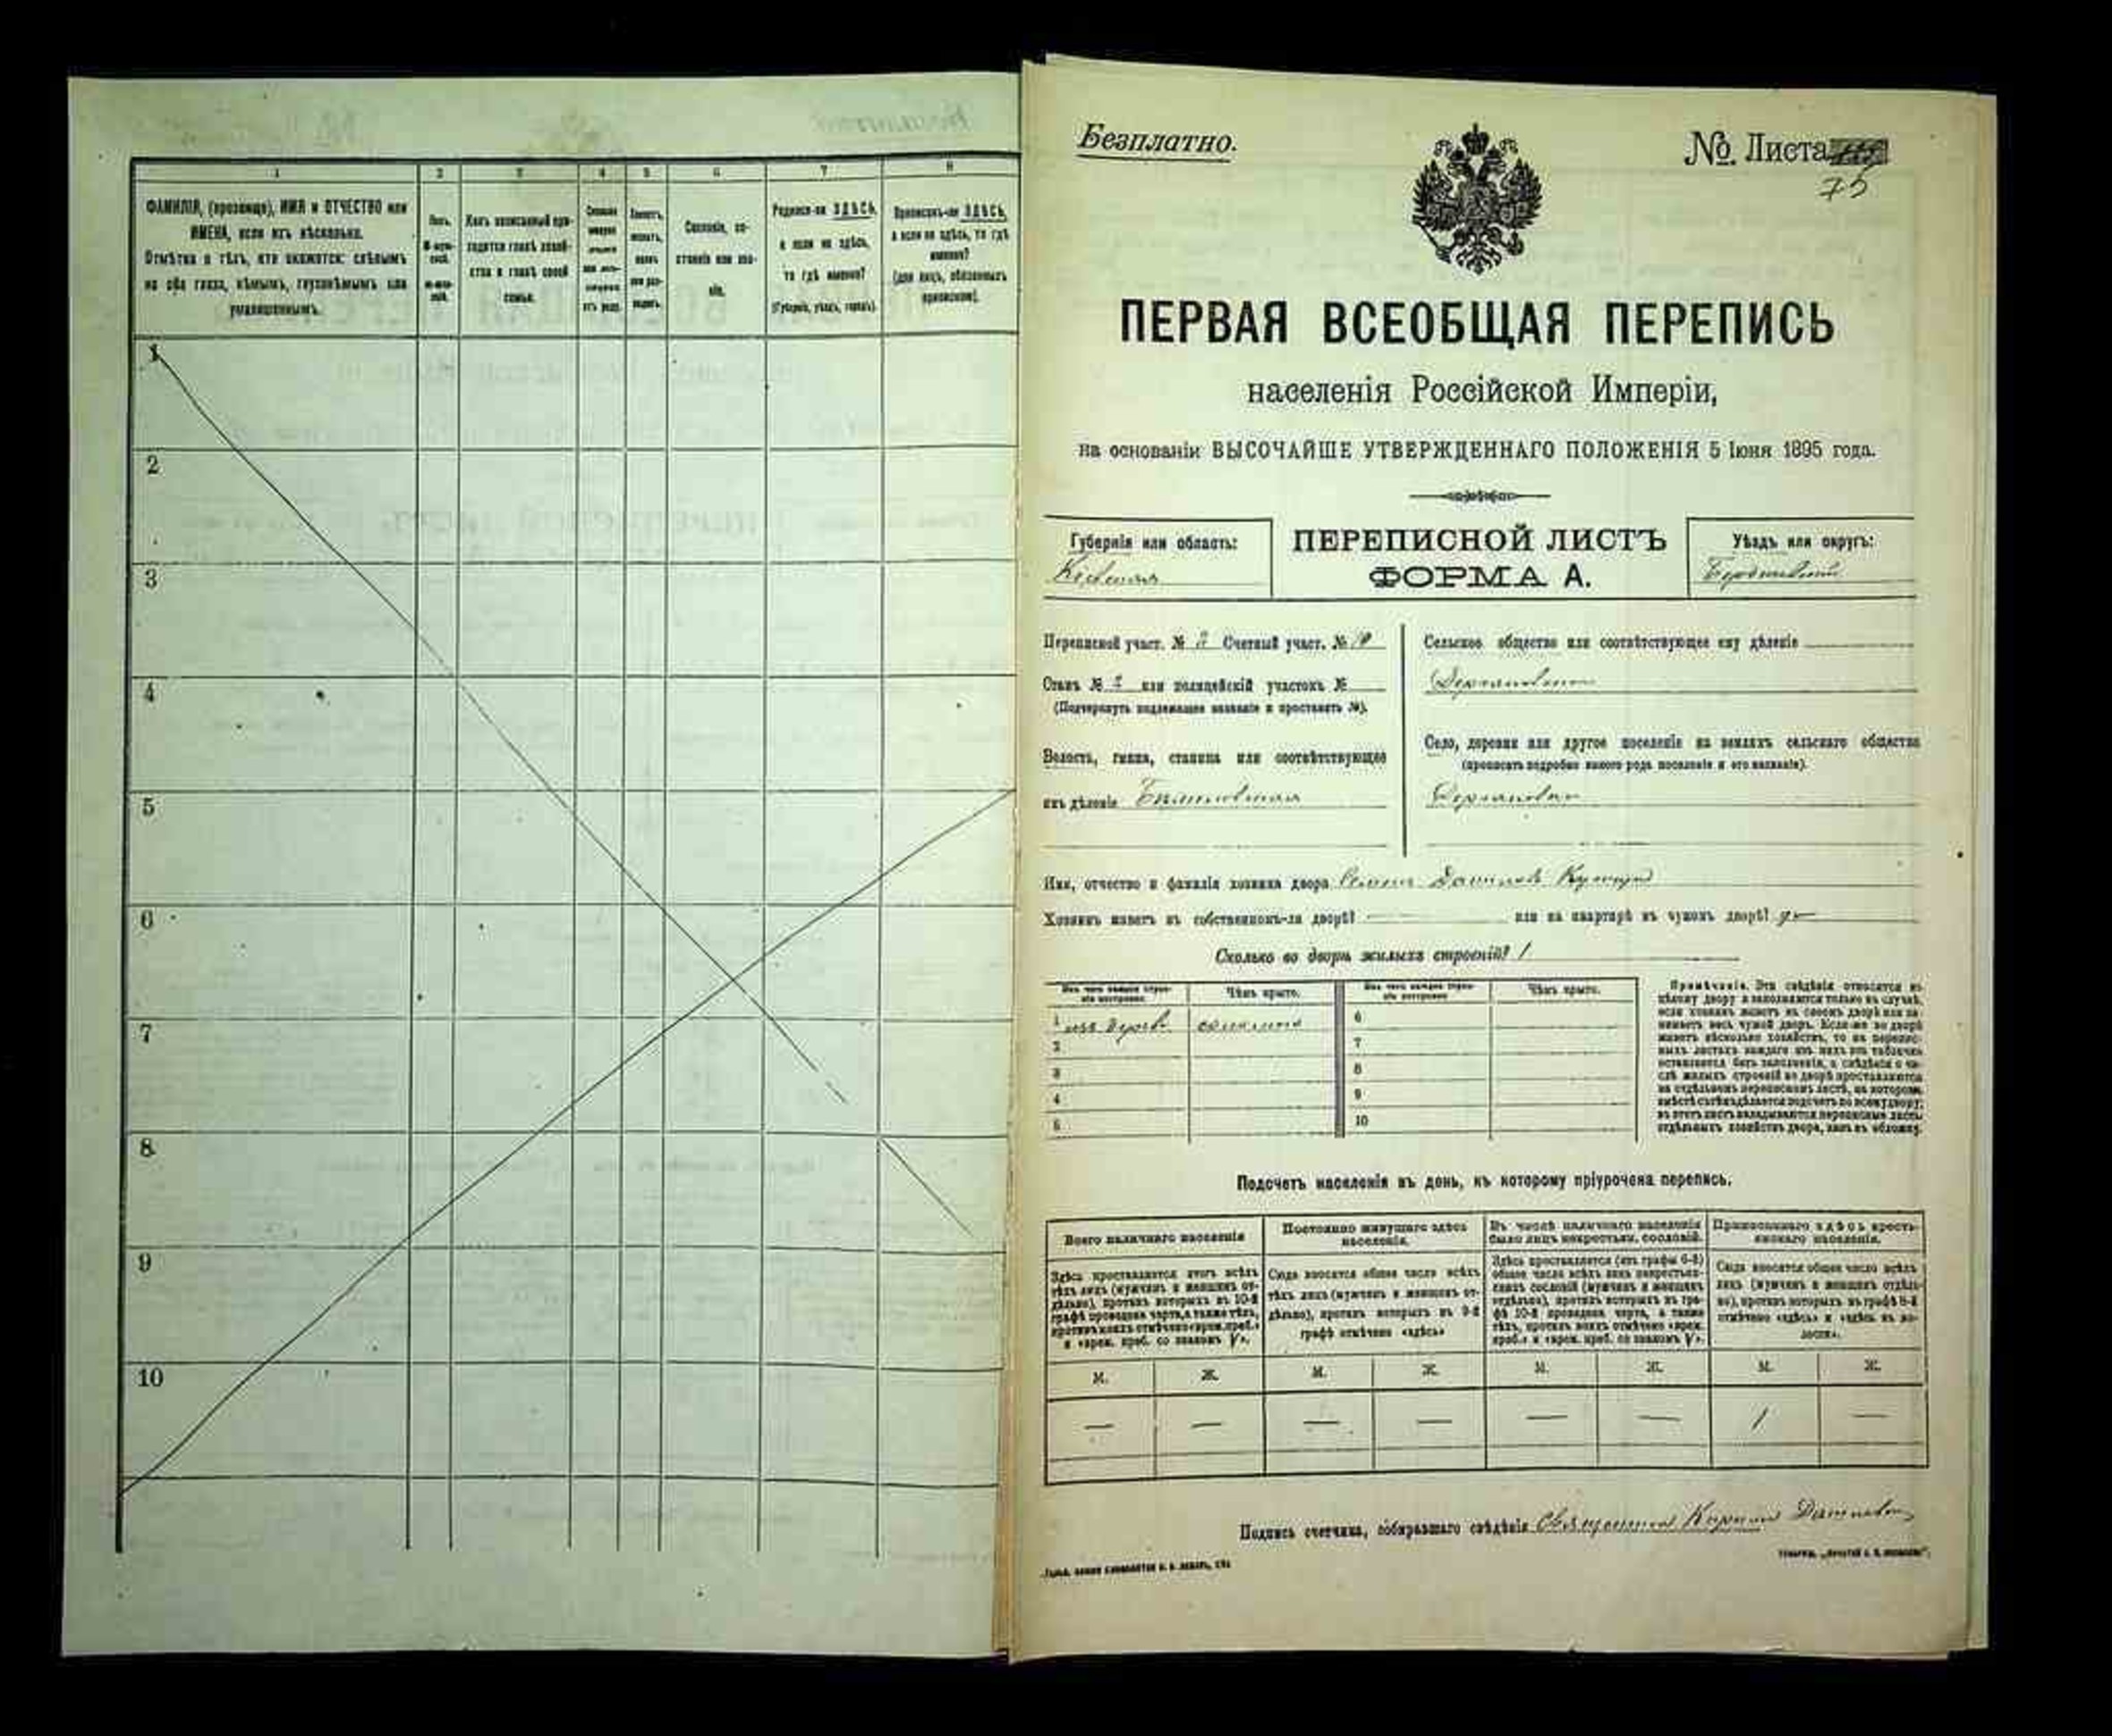 1 2 3 4 5 6 7 8
ФАМИЛІЯ, (прозвище), ИМЯ и ОТЧЕСТВО или
ИМЕНА, если ихъ нѣсколько.
Отмѣтка о тѣхъ, кто окажется: слѣпымъ
на оба глаза, нѣмымъ, глухонѣмымъ или
умалишеннымъ.
Полъ.
Какъ записанный при-
ходится главѣ хозяй-
ства и главѣ своей
семьи.
Сословіе, со-
стояніе или зва-
ніе.
Родился-ли ЗДѢСЬ,
а если не здѣсь,
то гдѣ именно?
(Губернія, уѣздъ, городъ).
Приписанъ-ли ЗДѢСЬ,
а если не здѣсь, то гдѣ
именно?
(для лицъ, обязанныхъ
припискою).
1
2
3
4
5
6
7
8
9
10
Безплатно.
№ Листа
75
ПЕРВАЯ ВСЕОБЩАЯ ПЕРЕПИСЬ
населенія Россійской Имперіи,
на основаніи ВЫСОЧАЙШЕ УТВЕРЖДЕННАГО ПОЛОЖЕНІЯ 5 Іюня 1895 года.
Губернія или область:
Кіевская
ПЕРЕПИСНОЙ ЛИСТЪ
ФОРМА А.
Уѣздъ или округъ:
Бердичевскій
Переписной участ. № 2 Счетный участ. №
Станъ № 2 или полицейскій участокъ №
(Подчеркнуть подлежащее названіе и проставить №).
Волость, гмина, станица или соотвѣтствующее
имъ дѣленіе
Сельское общество или соотвѣтствующее ему дѣленіе
Село, деревня или другое поселеніе на земляхъ сельскаго общества
(прописать подробно какого рода поселеніе и его названіе).
Имя, отчество и фамилія хозяина двора
Хозяинъ живетъ въ собственномъ-ли дворѣ? или на квартирѣ въ чужомъ дворѣ? да
Сколько во дворѣ жилыхъ строеній? 1
Изъ чего каждое строе-
ніе построено. Чѣмъ крыто. Изъ чего каждое строе-
ніе построено. Чѣмъ крыто.
1 изъ дерев. соломою 6
2 7
3 8
4 9
5 10
Примѣчаніе. Эти свѣдѣнія относятся къ
цѣлому двору и заполняются только въ случаѣ,
если хозяинъ живетъ въ своемъ дворѣ или за-
нимаетъ весь чужой дворъ. Если-же во дворѣ
живетъ нѣсколько хозяйствъ, то на перепис-
ныхъ листахъ каждаго изъ нихъ эта табличка
оставляется безъ заполненія, а свѣдѣнія о чи-
слѣ жилыхъ строеній во дворѣ проставляются
на отдѣльномъ переписномъ листѣ, на которомъ
вмѣстѣ съ тѣмъ дѣлается подсчетъ по всему двору;
въ этотъ листъ вкладываются переписные листы
отдѣльныхъ хозяйствъ двора, какъ въ обложку.
Подсчетъ населенія въ день, къ которому пріурочена перепись.
Всего наличнаго населенія
Здѣсь проставляется итогъ всѣхъ
тѣхъ лицъ (мужчинъ и женщинъ от-
дѣльно), противъ которыхъ въ 10-й
графѣ проведена черта, а также тѣхъ,
противъ коихъ отмѣчено «врем. преб.»
и «врем. преб. со знакомъ V».
Постоянно живущаго здѣсь
населенія.
Сюда вносится общее число всѣхъ
тѣхъ лицъ (мужчинъ и женщинъ от-
дѣльно), противъ которыхъ въ 9-й
графѣ отмѣчено «здѣсь»
Въ числѣ наличнаго населенія
было лицъ некрестьян. сословій.
Здѣсь проставляется (изъ графы 6-й)
общее число всѣхъ лицъ некрестьян-
скихъ сословій (мужчинъ и женщинъ
отдѣльно), противъ которыхъ въ гра-
фѣ 10-й проведена черта, а также
тѣхъ, противъ коихъ отмѣчено «врем.
преб.» и «врем. преб. со знакомъ V».
Приписаннаго здѣсь кресть-
янскаго населенія.
Сюда вносится общее число всѣхъ
лицъ (мужчинъ и женщинъ отдѣль-
но), противъ которыхъ въ графѣ 8-й
отмѣчено «здѣсь» и «здѣсь въ во-
лости».
М. Ж. М. Ж. М. Ж. М. Ж.
— — — — — — 1 —
Подпись счетчика, собиравшаго свѣдѣнія Священникъ